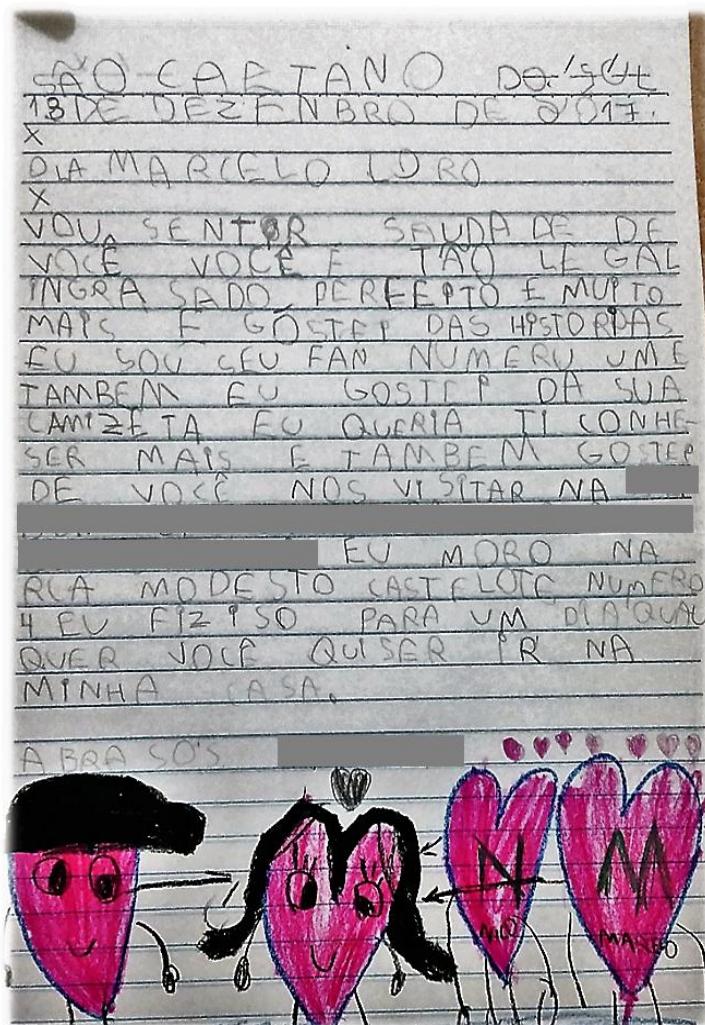 SÃO CAETANO DO SUL
13 DE DEZENBRO DE 2017.
X
DIA MARCELO LORO
X
VOU SENTIR SAUDADE DE
VOCÊ VOCÊ E TÃO LEGAL
INGRASADO, PERFEPTO E MUITO
MAIS E GOSTEI DAS HISTORIAS
EU SOU SEU FAN NUMERU UM E
TAMBEM EU GOSTEI DA SUA
CAMIZETA EU QUERIA TI CONHE-
SER MAIS E TAMBEM GOSTEI
DE VOCÊ NOS VISITAR NA
EU MORO NA
RUA MODESTO CASTELOTE NUMERO
4 EU FIZ ISO PARA UM DIA QUAL
QUER VOCÊ QUISER IR NA
MINHA CASA.
ABRASOS
N M